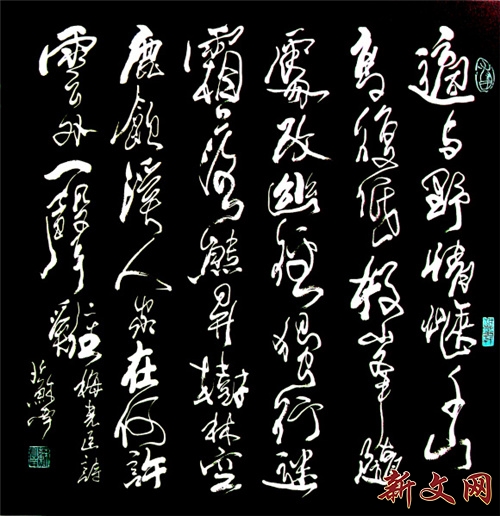 適与野情惬千山
高復低好峰隨
處改幽徑獨行迷
霜落熊昇樹林空
鹿飲溪人家在何許
雲外一聲雞
梅尧臣詩
新文网